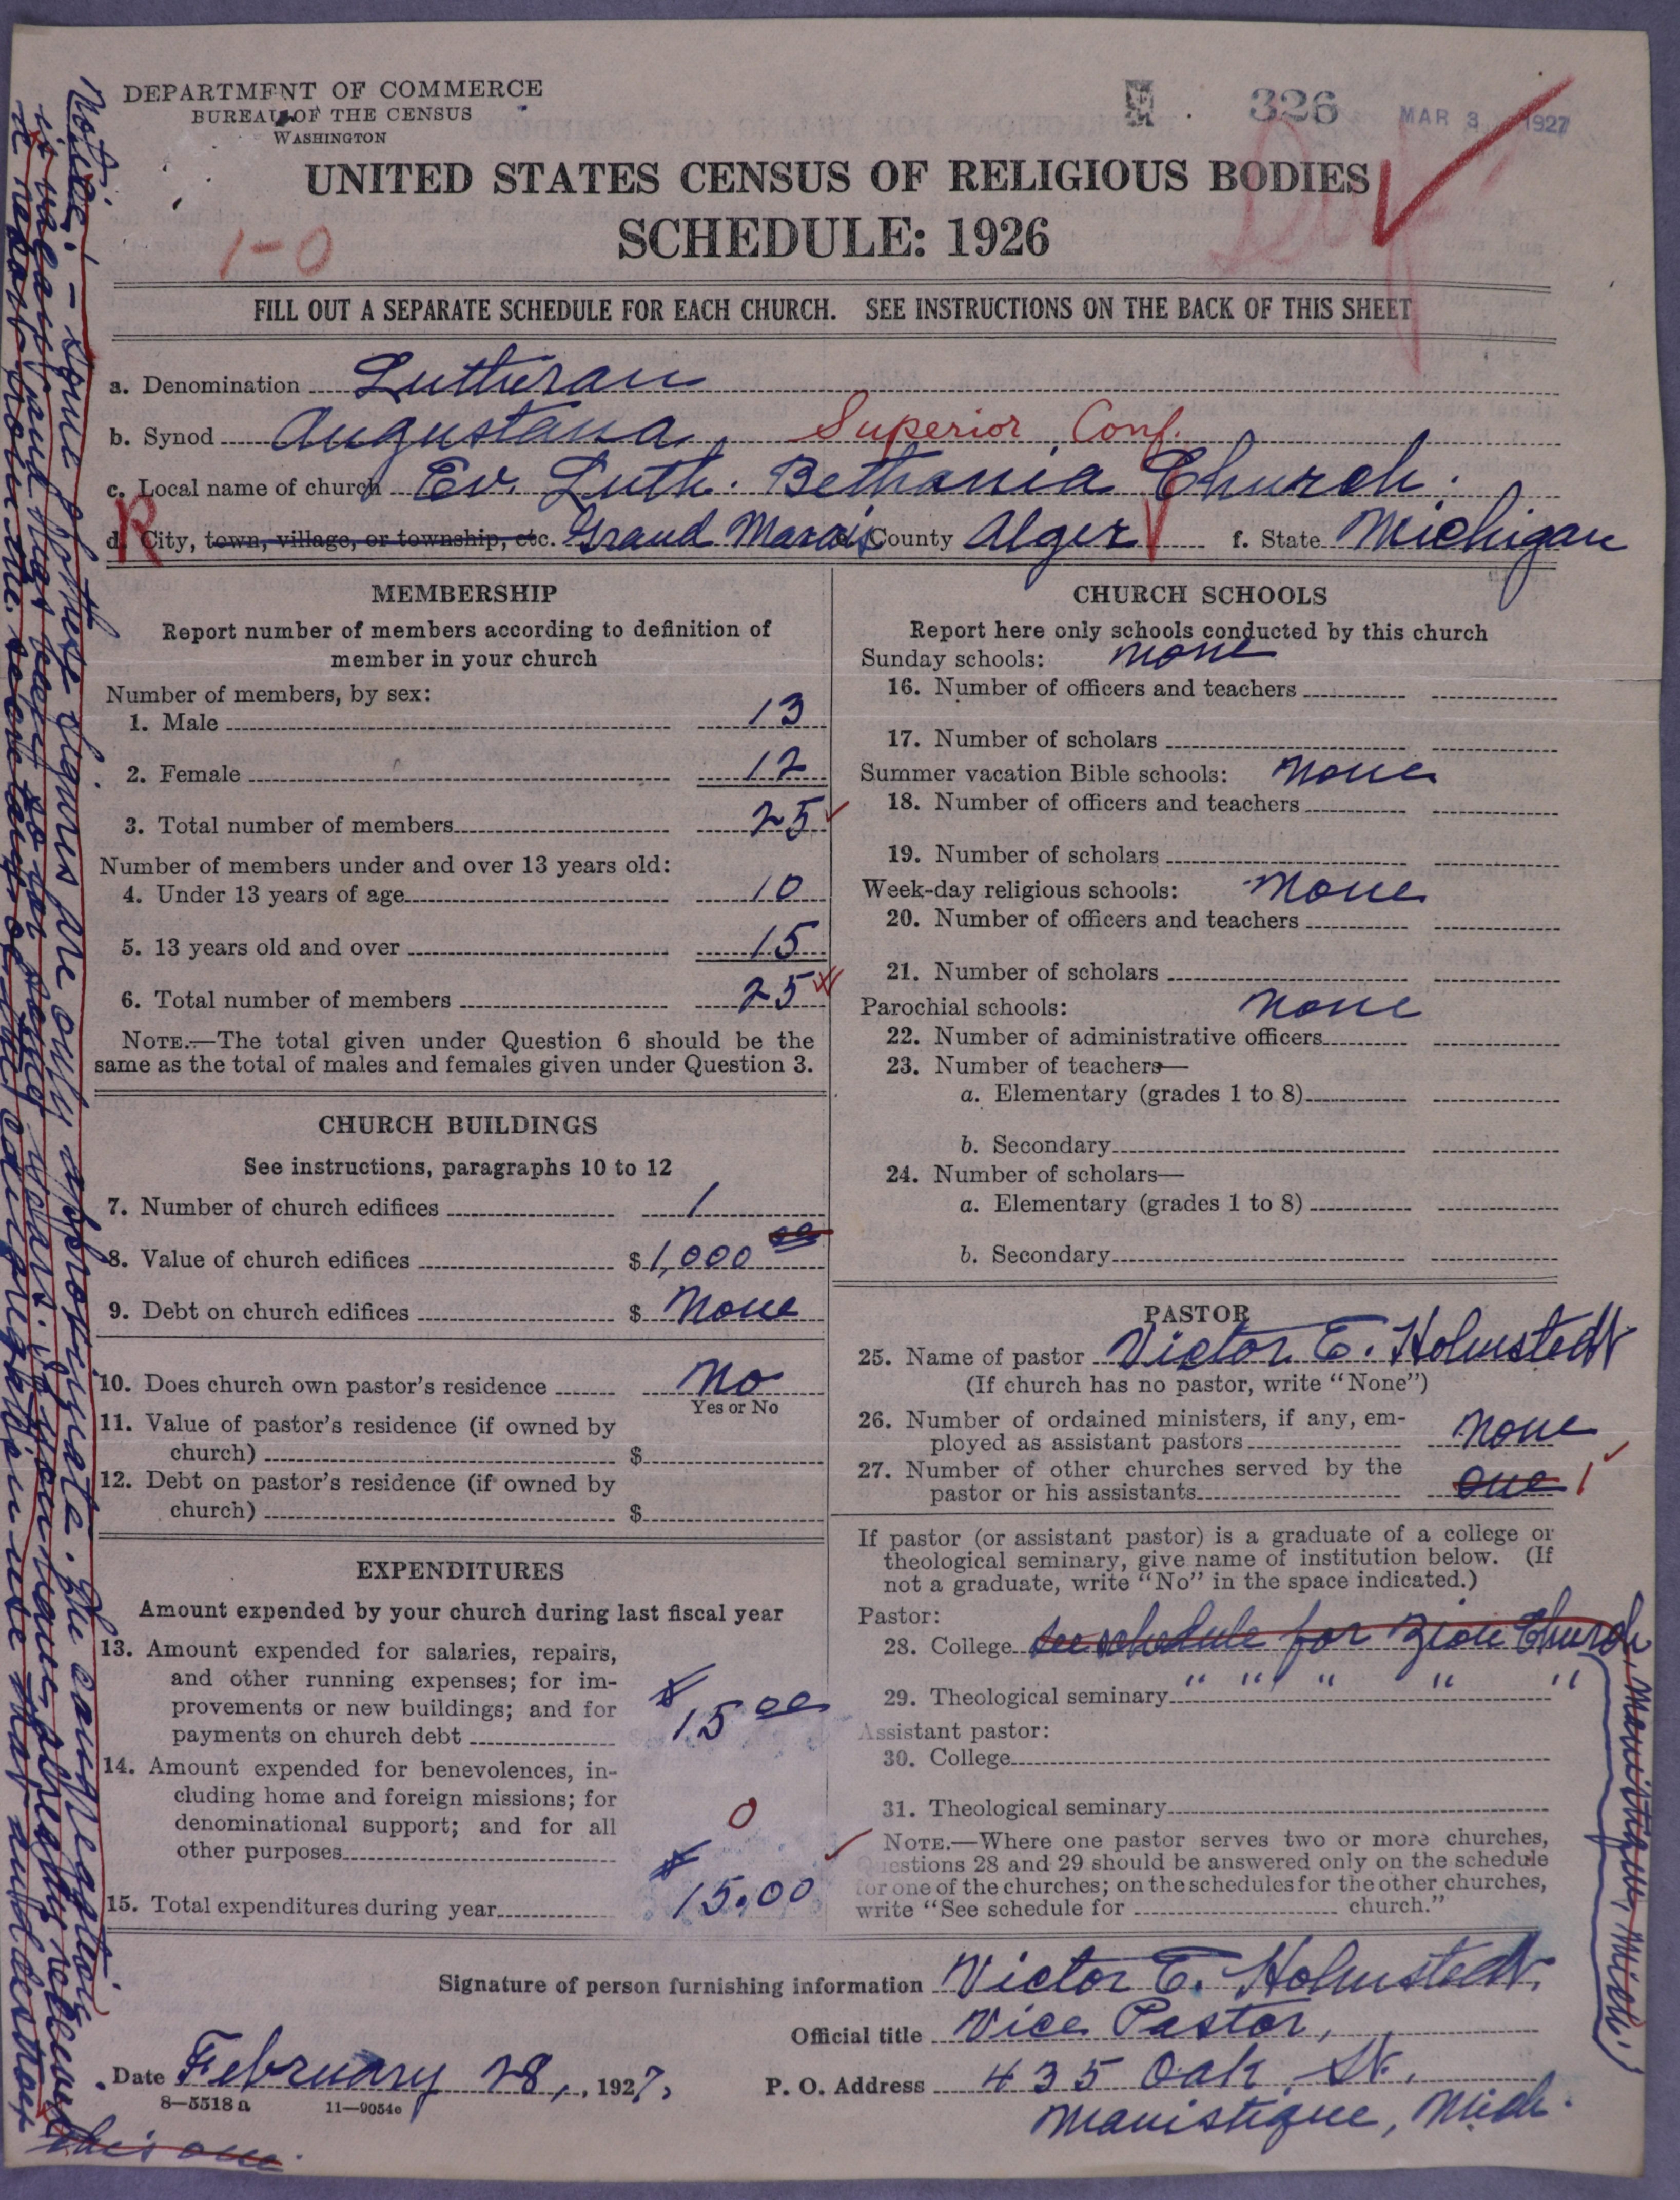 DEPARTMENT OF COMMERCE
BUREAU OF THE CENSUS
WASHINGTON
326
MAR 3 1927
UNITED STATES CENSUS OF RELIGIOUS BODIES
SCHEDULE: 1926
1-0
FILL OUT A SEPARATE SCHEDULE FOR EACH CHURCH. SEE INSTRUCTIONS ON THE BACK OF THIS SHEET
a. Denomination Lutheran
b. Synod Augustana Superior Conf.
c. Local name of church Ev. Luth. Bethania Church.
R
d. City, town, village, or township, etc. Grand Marais County Alger f. State Michigan
MEMBERSHIP
Report number of members according to definition of
member in your church
Number of members, by sex:
1. Male 13
2. Female 12
3. Total number of members 25
Number of members under and over 13 years old:
4. Under 13 years of age 10
5. 13 years old and over 15
6. Total number of members 25
NOTE.—The total given under Question 6 should be the
same as the total of males and females given under Question 3.
CHURCH BUILDINGS
See instructions, paragraphs 10 to 12
7. Number of church edifices 1
8. Value of church edifices $ 1,000 00
9. Debt on church edifices $ None
10. Does church own pastor's residence No
Yes or No
11. Value of pastor's residence (if owned by
church) $
12. Debt on pastor's residence (if owned by
church) $
EXPENDITURES
Amount expended by your church during last fiscal year
13. Amount expended for salaries, repairs,
and other running expenses; for im-
provements or new buildings; and for
payments on church debt $ 15 00
14. Amount expended for benevolences, in-
cluding home and foreign missions; for
denominational support; and for all
other purposes 0
15. Total expenditures during year $ 15.00
CHURCH SCHOOLS
Report here only schools conducted by this church
Sunday schools: None
16. Number of officers and teachers
17. Number of scholars
Summer vacation Bible schools: None
18. Number of officers and teachers
19. Number of scholars
Week-day religious schools: None
20. Number of officers and teachers
21. Number of scholars
Parochial schools: None
22. Number of administrative officers
23. Number of teachers—
a. Elementary (grades 1 to 8)
b. Secondary
24. Number of scholars—
a. Elementary (grades 1 to 8)
b. Secondary
PASTOR
25. Name of pastor Victor E. Holmstedt
(If church has no pastor, write "None")
26. Number of ordained ministers, if any, em-
ployed as assistant pastors None
27. Number of other churches served by the
pastor or his assistants one 1
If pastor (or assistant pastor) is a graduate of a college or
theological seminary, give name of institution below. (If
not a graduate, write "No" in the space indicated.)
Pastor:
28. College See schedule for Zion Church, Manistique, Mich.
29. Theological seminary " " " " "
Assistant pastor:
30. College
31. Theological seminary
NOTE.—Where one pastor serves two or more churches,
Questions 28 and 29 should be answered only on the schedule
for one of the churches; on the schedules for the other churches,
write "See schedule for church."
Signature of person furnishing information Victor E. Holmstedt.
Official title Vice Pastor,
Date February 28, 1927,
P. O. Address 435 Oak St.
Manistique, Mich.
8—5518 a 11—9054e
Notice: - Some of these figures are only approximate. The congregation
is vacant and has been so for many years.
this one.